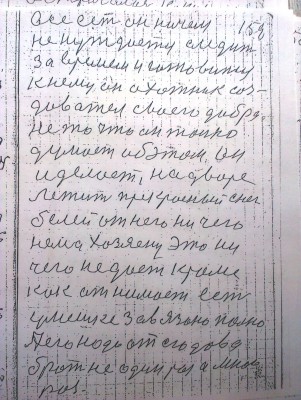 он ничем 159
не нуждается следит
за временем и готовится
к нему он охотник соз-
дователь своего добра,
не то что он только
думает об этом, он
и делает, на дворе
летит прекрасный снег
белей от него ни чего
нема хозяену это ни
чего не дает кроме
как отнимает есть
завязано полно
его надо от сюдова
брать не один раз а много
раз